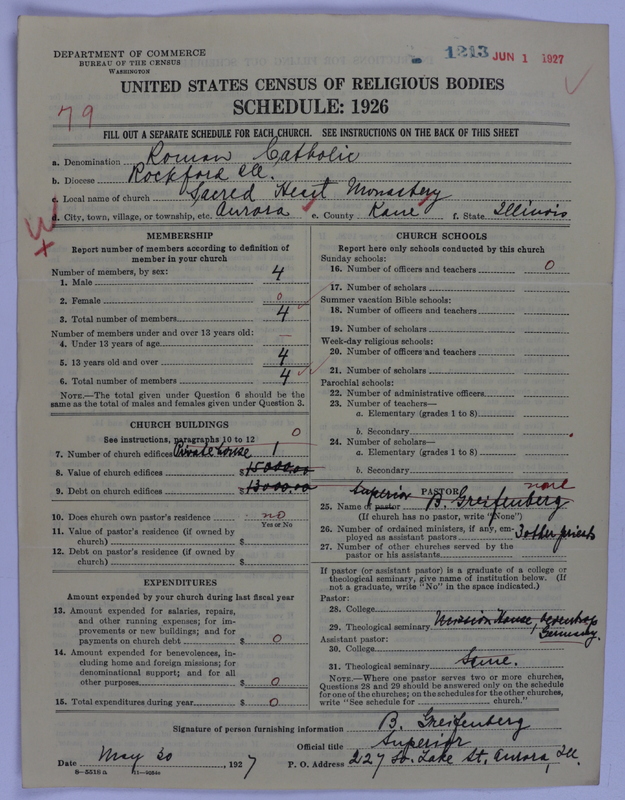 DEPARTMENT OF COMMERCE
BUREAU OF THE CENSUS
WASHINGTON
1213 JUN 1 1927
UNITED STATES CENSUS OF RELIGIOUS BODIES
SCHEDULE: 1926
79
FILL OUT A SEPARATE SCHEDULE FOR EACH CHURCH. SEE INSTRUCTIONS ON THE BACK OF THIS SHEET
a. Denomination Roman Catholic
b. Diocese Rockford Ill.
c. Local name of church Sacred Heart Monastery
d. City, town, village, or township, etc. Aurora e. County Kane f. State Illinois
MEMBERSHIP
Report number of members according to definition of
member in your church
Number of members, by sex:
1. Male 4
2. Female 0
3. Total number of members 4
Number of members under and over 13 years old:
4. Under 13 years of age
5. 13 years old and over 4
6. Total number of members 4
NOTE.—The total given under Question 6 should be
same as the total of males and females given under Question 3.
CHURCH BUILDINGS
See instructions, paragraphs 10 to 12 0
7. Number of church edifices Private house 1
8. Value of church edifices $15000.00
9. Debt on church edifices $13000.00
10. Does church own pastor's residence no
Yes or No
11. Value of pastor's residence (if owned by
church) $
12. Debt on pastor's residence (if owned by
church) $
EXPENDITURES
Amount expended by your church during last fiscal year
13. Amount expended for salaries, repairs,
and other running expenses; for im-
provements or new buildings; and for
payments on church debt $ 0
14. Amount expended for benevolences, in-
cluding home and foreign missions; for
denominational support; and for all
other purposes $ 0
15. Total expenditures during year $ 0
CHURCH SCHOOLS
Report here only schools conducted by this church
Sunday schools:
16. Number of officers and teachers 0
17. Number of scholars
Summer vacation Bible schools:
18. Number of officers and teachers
19. Number of scholars
Week-day religious schools:
20. Number of officers and teachers
21. Number of scholars
Parochial schools:
22. Number of administrative officers
23. Number of teachers—
a. Elementary (grades 1 to 8)
b. Secondary
24. Number of scholars—
a. Elementary (grades 1 to 8)
b. Secondary
PASTOR none
Superior
25. Name of pastor B. Greifenberg
(If church has no pastor, write "None")
26. Number of ordained ministers, if any, em-
ployed as assistant pastors 3 other priests
27. Number of other churches served by the
pastor or his assistants
If pastor (or assistant pastor) is a graduate of a college or
theological seminary, give name of institution below. (If
not a graduate, write "No" in the space indicated.)
Pastor:
28. College
29. Theological seminary Mission House,
Seminary.
Assistant pastor:
30. College
31. Theological seminary Same.
NOTE.—Where one pastor serves two or more churches,
Questions 28 and 29 should be answered only on the schedule
for one of the churches; on the schedules for the other churches,
write "See schedule for church."
Signature of person furnishing information B. Greifenberg
Official title Superior
Date May 20, 1927 P. O. Address 227 So. Lake St, Aurora, Ill.
8—5518a 11—9684